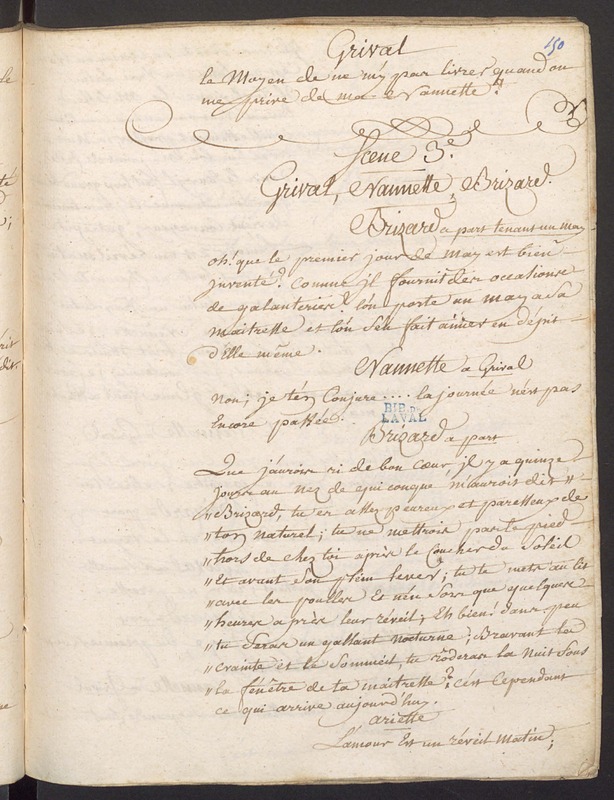 Grival
150
le Moyen de ne m'y pas livrer quand on
me prive de ma Nannette?
Scene 3.e
Grival, Nannette, Brizard.
Brizard a part tenant un may
oh! que le premier jour de may est bien
jnventé! Comme jl fournit des occasions
de galanteries! l'on porte un may a sa
maitresse et l'on s'en fait aimer en dépit
d'Elle même.
Nannette a Grival
Non; je t'en Conjure .... la journée n'est pas
Encore passée.
BIB. DE
LAVAL
Brizard a part
Que j'aurois ri de bon cœur, jl y a quinze
jours au nez de quiconque m'auroit dit "
" Brizard, tu es assez peureux et paresseux de
" ton naturel; tu ne mettrois pas le pied
" hors de chez toi après le Coucher du Soleil
" Et avant son plein lever; tu te mets au lit
" avec les poulles Et n'en sors que quelques
" heures après leur réveil; Eh bien! dans peu
" tu seras un gallant nocturne; Bravant la
" crainte et le Sommeil, tu rôderas la Nuit sous
" la fenêtre de ta maitresse? c'est Cependant
ce qui arrive aujourd'huy.
ariette
L'amour Est un réveil matin;